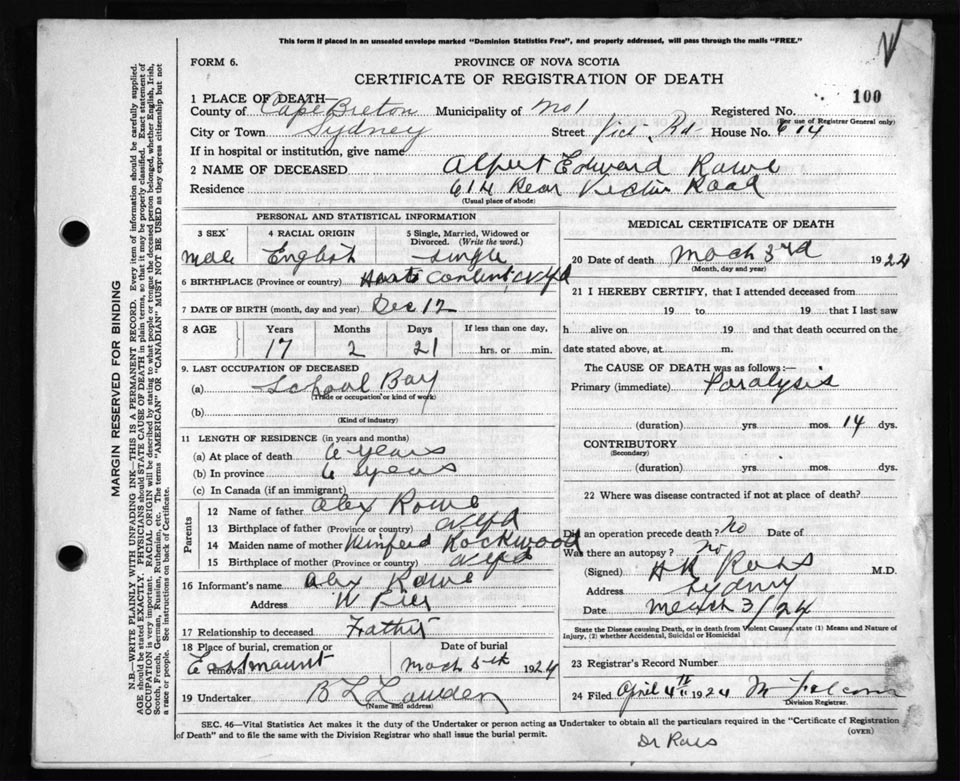 This form if placed in an unsealed envelope marked "Dominion Statistics Free", and properly addressed, will pass through the mails "FREE."
FORM 6.
PROVINCE OF NOVA SCOTIA
CERTIFICATE OF REGISTRATION OF DEATH
100
1 PLACE OF DEATH—
County of Cape Breton Municipality of No 1 Registered No.
(For use of Registrar General only)
City or Town Sydney Street Vict. Rd House No. 614
If in hospital or institution, give name
2 NAME OF DECEASED Alfert Edward Rowe
Residence 614 Rear Victoria Road
(Usual place of abode)
PERSONAL AND STATISTICAL INFORMATION
3 SEX 4 RACIAL ORIGIN 5 Single, Married, Widowed or Divorced. (Write the word.)
Male English Single
6 BIRTHPLACE (Province or country) Hearts Content, Nfld
7 DATE OF BIRTH (month, day and year) Dec 12
8 AGE Years Months Days If less than one day,
17 2 21 hrs. or min.
9. LAST OCCUPATION OF DECEASED
(a) School Boy
(Trade or occupation or kind of work)
(b)
(Kind of industry)
11 LENGTH OF RESIDENCE (in years and months)
(a) At place of death 6 years
(b) In province 6 years
(c) In Canada (if an immigrant)
Parents
12 Name of father Alex Rowe
13 Birthplace of father (Province or country) Nfld
14 Maiden name of mother Winferd Rockwood
15 Birthplace of mother (Province or country) Nfld
16 Informant's name Alex Rowe
Address W Pier
17 Relationship to deceased Father
18 Place of burial, cremation or removal Date of burial
Eastmount Mach 5th 1924
19 Undertaker B L Lowden
(Name and address)
MEDICAL CERTIFICATE OF DEATH
20 Date of death Mach 3rd 1924
(Month, day and year)
21 I HEREBY CERTIFY, that I attended deceased from
19 to 19 that I last saw
h alive on 19 and that death occurred on the
date stated above, at m.
The CAUSE OF DEATH was as follows:—
Primary (immediate) Paralysis
(duration) yrs. mos. 14 dys.
CONTRIBUTORY
(Secondary)
(duration) yrs. mos. dys.
22 Where was disease contracted if not at place of death?
Did an operation precede death? No Date of
Was there an autopsy? no
(Signed) H R Ross M.D.
Address Sydney
Date March 3/24
State the Disease causing Death, or in death from Violent Causes, state (1) Means and Nature of
Injury, (2) whether Accidental, Suicidal or Homicidal
23 Registrar's Record Number
24 Filed April 4th 1924
Division Registrar.
SEC. 46—Vital Statistics Act makes it the duty of the Undertaker or person acting as Undertaker to obtain all the particulars required in the "Certificate of Registration
of Death" and to file the same with the Division Registrar who shall issue the burial permit.
(OVER)
Dr Ross
MARGIN RESERVED FOR BINDING
N.B.—WRITE PLAINLY WITH UNFADING INK—THIS IS A PERMANENT RECORD. Every item of information should be carefully supplied.
AGE should be stated EXACTLY. PHYSICIANS should STATE CAUSE OF DEATH in plain terms, so that it may be properly classified. Exact statement of
OCCUPATION is very important. RACIAL ORIGIN will be described by stating to what people or tongue the deceased person belonged, whether English, Irish,
Scotch, French, German, Russian, Ruthenian, etc. The terms "AMERICAN" OR "CANADIAN" MUST NOT BE USED as they express citizenship but not
a race or people. See instructions on back of Certificate.